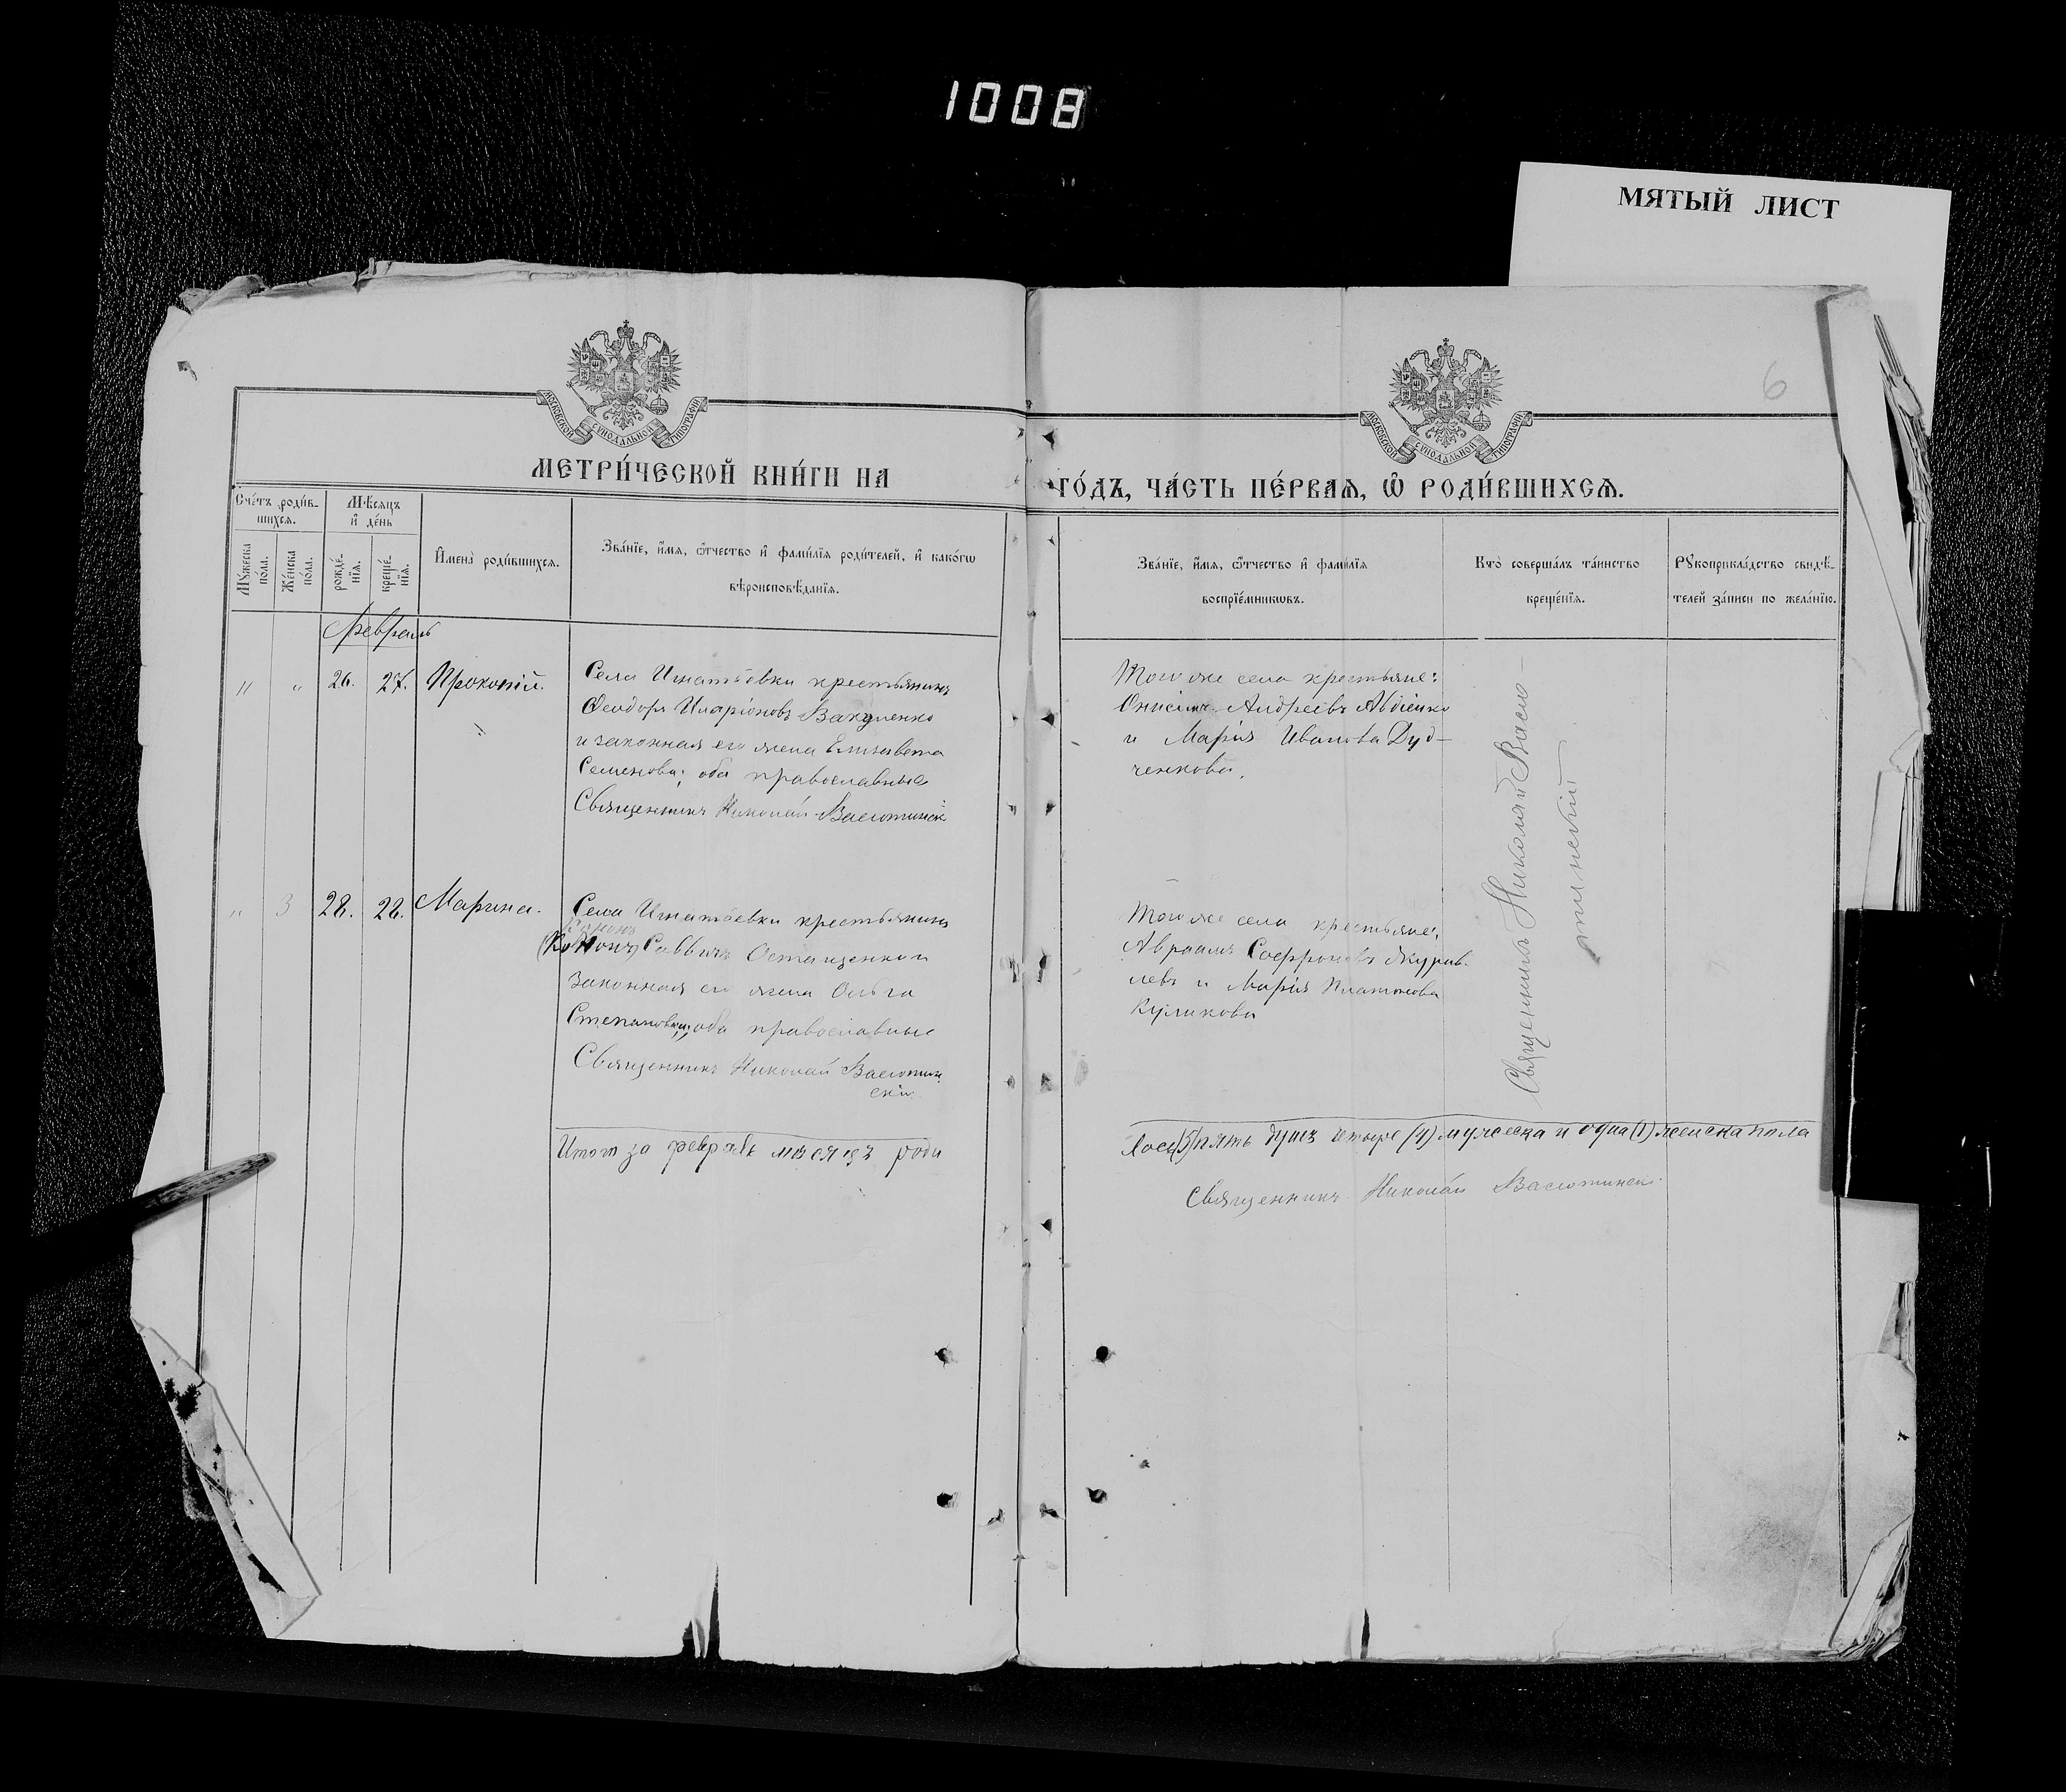 1008
МЯТЫЙ ЛИСТ
6
МОСКОВСКОЙ СѴНОДАЛЬНОЙ ТИПОГРАФІИ
МОСКОВСКОЙ СѴНОДАЛЬНОЙ ТИПОГРАФІИ
МЕТРИ́ЧЕСКОЙ КНИ́ГИ НА
ГО́ДЪ, ЧА́СТЬ ПЕ́РВАѦ, Ѽ РОДИ́ВШИХСѦ.
Сче́тъ роди́в-
шихсѧ.
Мѣ́сѧцъ
и҆ де́нь
Мꙋ́жеска
по́ла.
Же́нска
по́ла.
рожде́-
нїѧ.
креще́-
нїѧ.
И҆мена̀ роди́вшихсѧ.
Зва́нїе, и҆́мѧ, ѻ҆́тчество и҆ фами́лїѧ роди́телей, и҆ како́гѡ
вѣроисповѣ́данїѧ.
Зва́нїе, и҆́мѧ, ѻ҆́тчество и҆ фами́лїѧ
воспрїе́мникѡвъ.
Кто̀ соверша́лъ та́инство
креще́нїѧ.
Рꙋкоприкла́дство свидѣ́-
телей за́писи по жела́нїю.
Февраль
" " 26. 27. Прокопій.
Села Игнатьевки крестьянинъ
Феодоръ Иларіоновъ Вакуленко
и законная его жена Елизавета
Семенова; оба православные
Священникъ Николай Васютинскі
Того же села крестьяне:
Онисимъ Андреевъ Авдіенко
и Марія Иванова Дуд-
ченкова.
" 3 28. 28. Марина.
Села Игнатьевки крестьянинъ
(Кононъ) Саввичъ Остащенко и
законная его жена Ольга
Степановна, оба православные
Священникъ Николай Васютин
скій
Того же села крестьяне:
Авраамъ Софроновъ Журав-
левъ и Марія Платонова
Куликова
Священникъ Николай Васю-
тинскій
Итого за февраль месяцъ роди
лось (5) пять душъ четыре (4) мужеска и одна (1) женска пола
Священникъ Николай Васютинскі